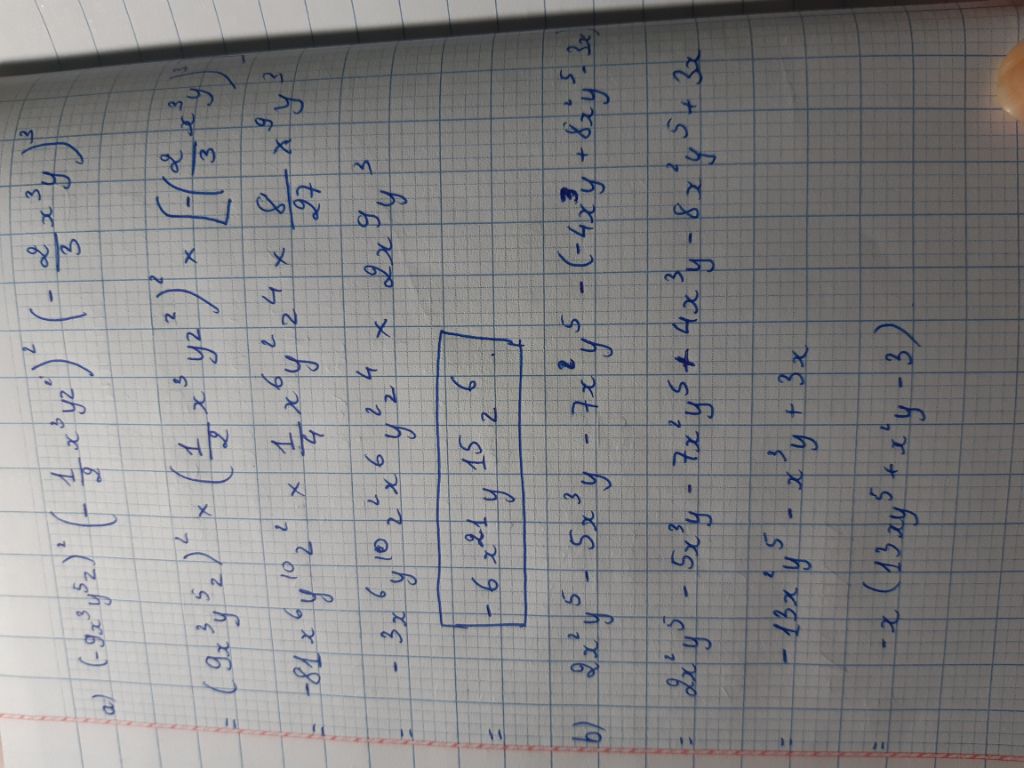 a) (-9x³y⁵z)² (-1/2 x³yz²)² (-2/3 x³y)³
= (9x³y⁵z)² × (1/2 x³yz²)² × [-(2/3 x³y)³
= -81x⁶y¹⁰z² × 1/4 x⁶y²z⁴ × 8/27 x⁹y³
= -3x⁶y¹⁰z²x⁶y²z⁴ × 2x⁹y³
= -6x²¹y¹⁵z⁶
b) 2x²y⁵ - 5x³y - 7x²y⁵ - (-4x³y + 8x²y⁵ - 3x)
= 2x²y⁵ - 5x³y - 7x²y⁵ + 4x³y - 8x²y⁵ + 3x
= -13x²y⁵ - x³y + 3x
= -x (13xy⁵ + x²y - 3)